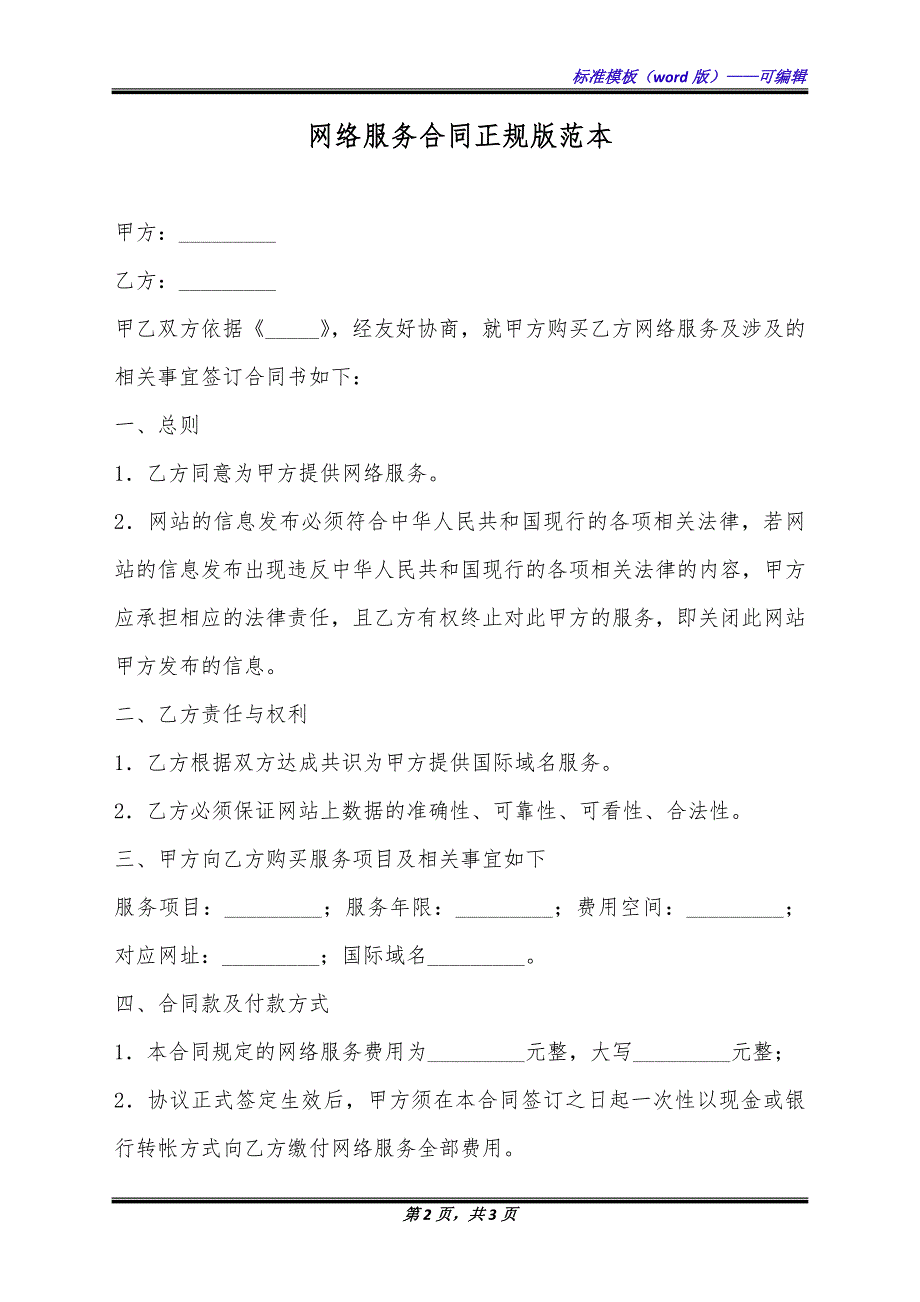 标准模板（word 版）——可编辑
网络服务合同正规版范本
甲方：_________
乙方：_________
甲乙双方依据《_____》，经友好协商，就甲方购买乙方网络服务及涉及的
相关事宜签订合同书如下：
一、总则
1．乙方同意为甲方提供网络服务。
2．网站的信息发布必须符合中华人民共和国现行的各项相关法律，若网
站的信息发布出现违反中华人民共和国现行的各项相关法律的内容，甲方
应承担相应的法律责任，且乙方有权终止对此甲方的服务，即关闭此网站
甲方发布的信息。
二、乙方责任与权利
1．乙方根据双方达成共识为甲方提供国际域名服务。
2．乙方必须保证网站上数据的准确性、可靠性、可看性、合法性。
三、甲方向乙方购买服务项目及相关事宜如下
服务项目：_________；服务年限：_________；费用空间：_________；
对应网址：_________；国际域名_________。
四、合同款及付款方式
1．本合同规定的网络服务费用为_________元整，大写_________元整；
2．协议正式签定生效后，甲方须在本合同签订之日起一次性以现金或银
行转帐方式向乙方缴付网络服务全部费用。
第 2 页，共 3 页